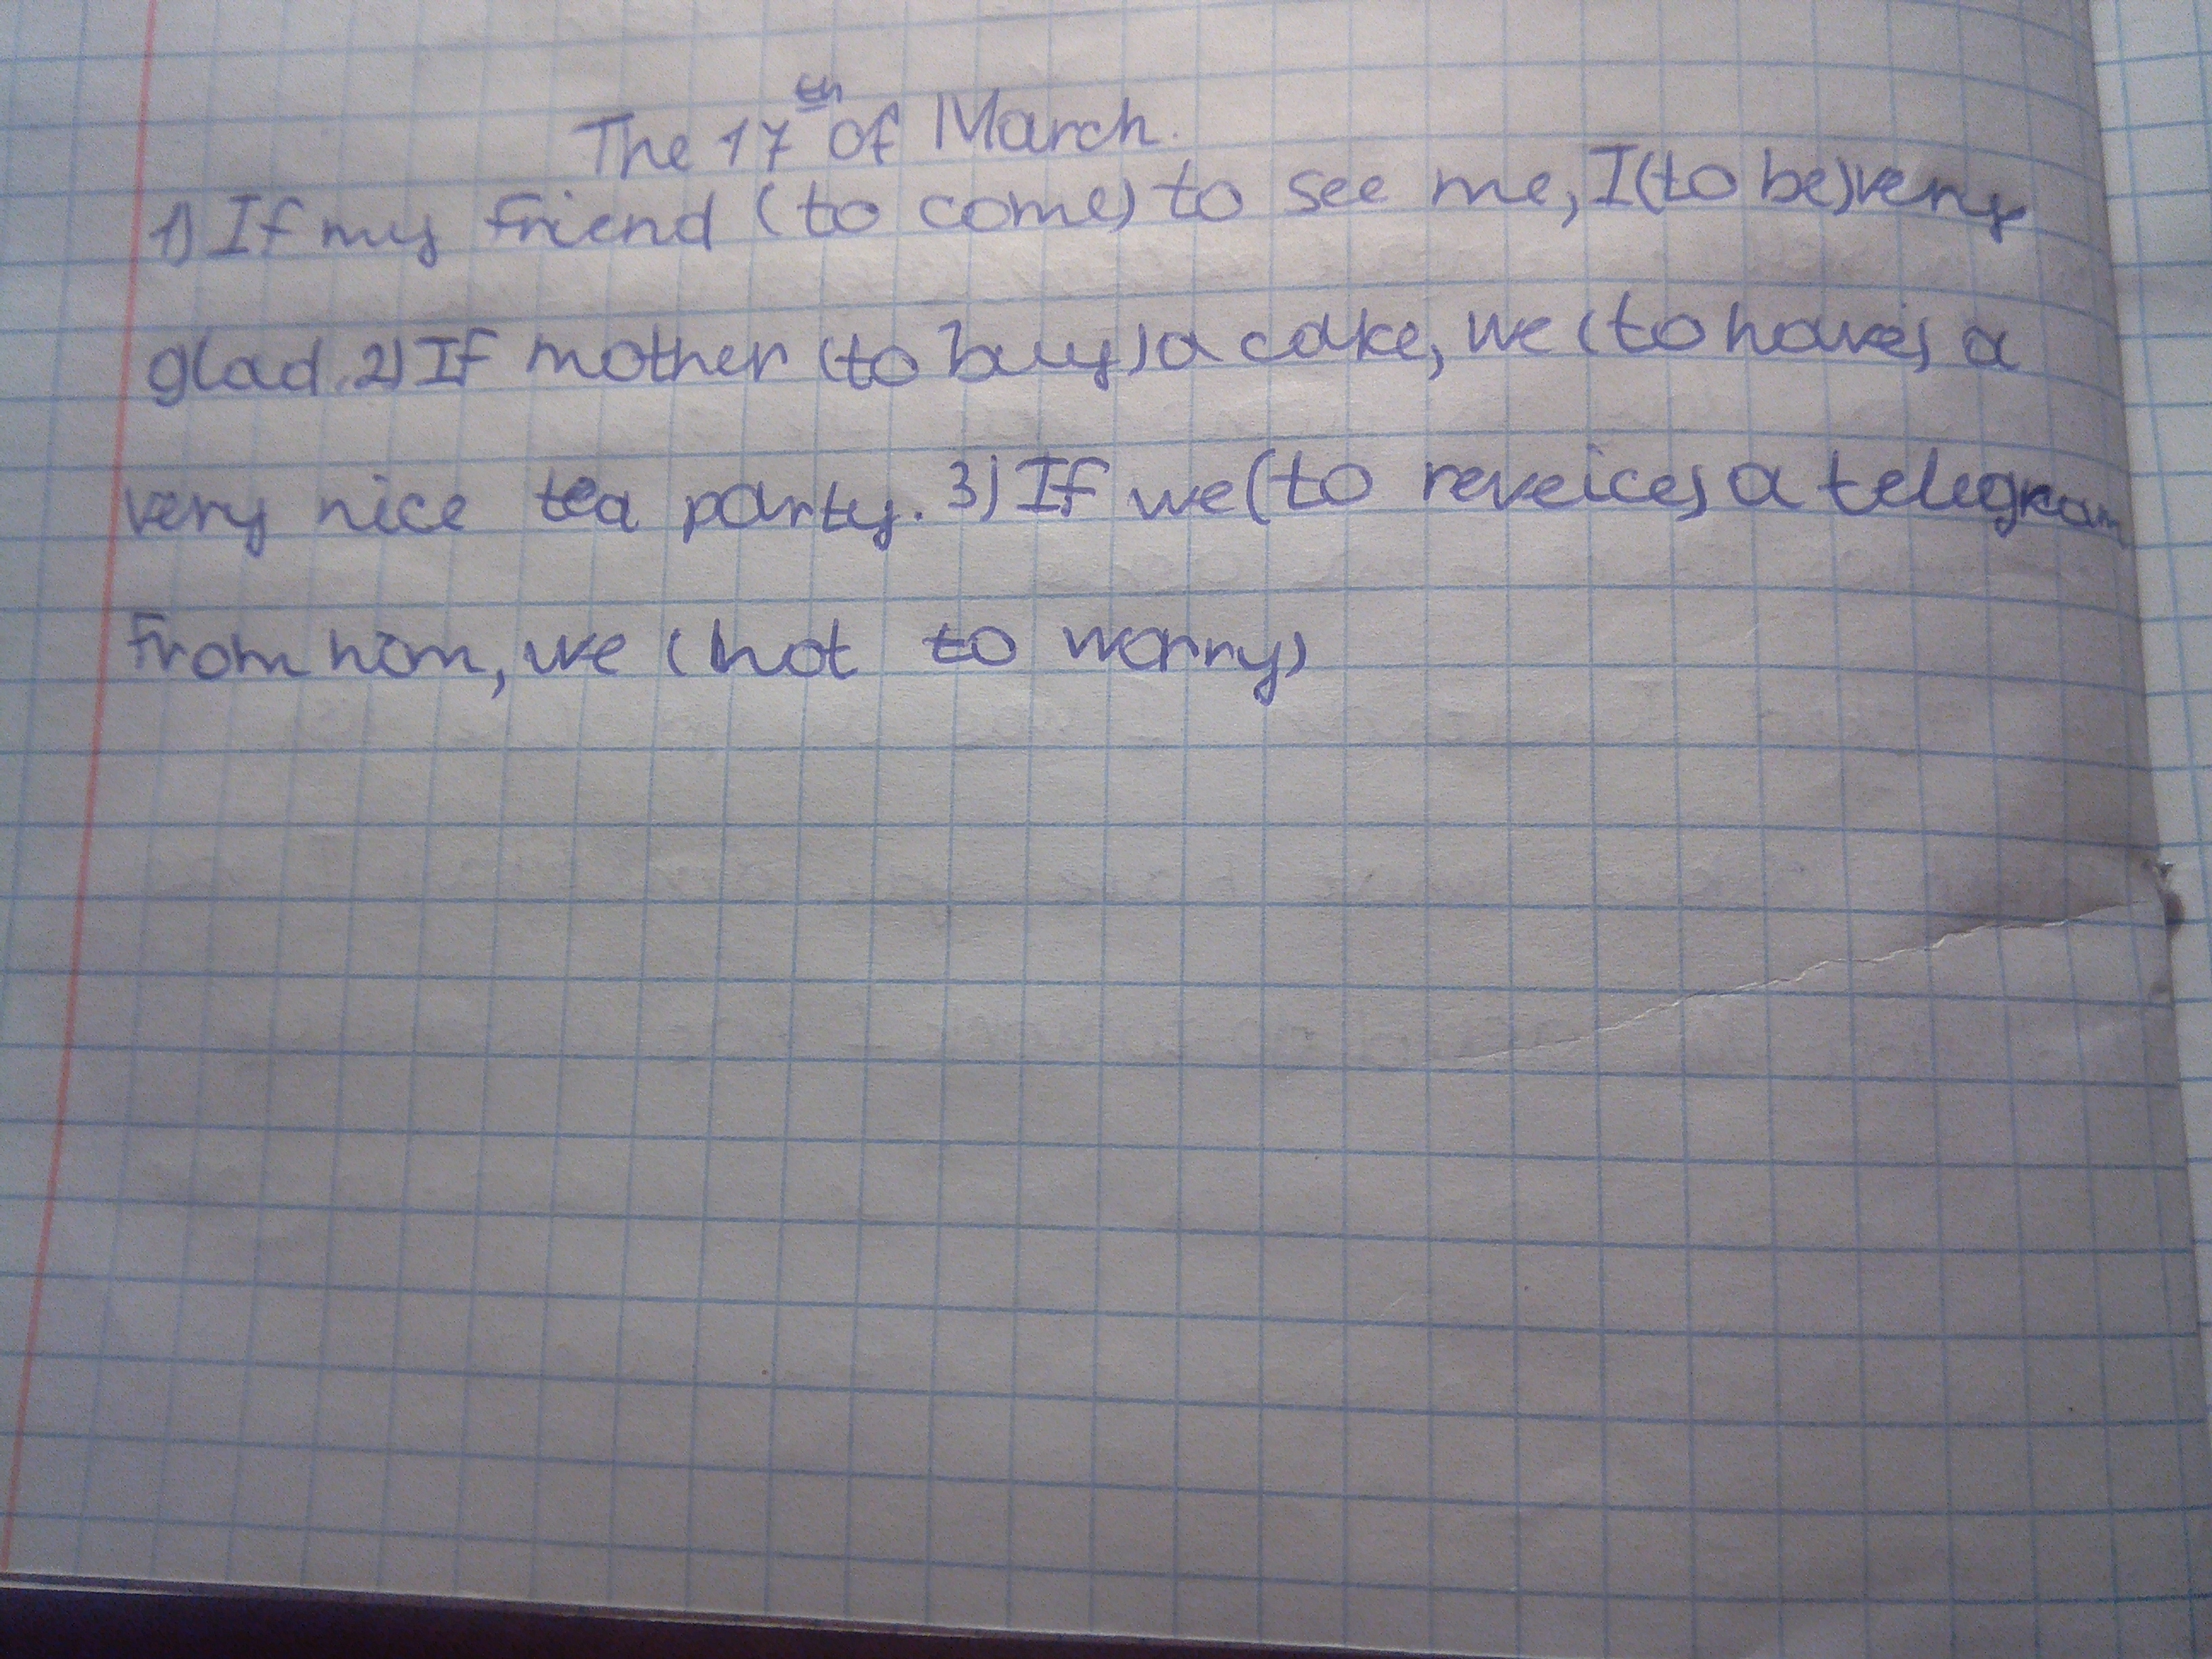 The 17th of March.
1) If my friend (to come) to see me, I (to be) very
glad. 2) If mother (to buy) a cake, we (to have) a
very nice tea party. 3) If we (to reveice) a telegram
from him, we (not to worry)